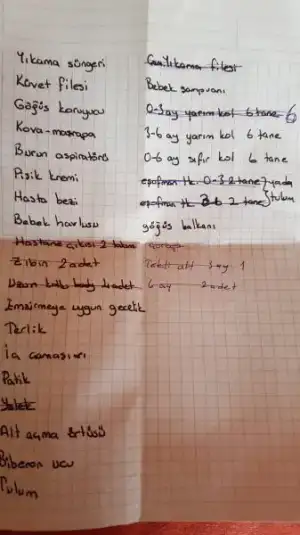 Yıkama süngeri
Küvet filesi
Göğüs koruyucu
Kova-maşrapa
Burun aspiratörü
Pişik kremi
Hasta bezi
Bebek havlusu
Hastane çıkışı 2 takım
Zıbın 2 adet
Uzun kollu body 4 adet
Emzirmeye uygun gecelik
Terlik
İç çamaşırı
Patik
Yelek
Alt açma örtüsü
Biberon ucu
Tulum
filesi
Bebek şampuanı
0-3 ay yarım kol 6 tane 6
3-6 ay yarım kol 6 tane
0-6 ay sıfır kol 6 tane
eşofman tk. 0-3 2 tane yada
eşofman tk 3-6 2 tane tulum
göğüs balkanı
çorap
alt 3 ay 1
6 ay 2 adet